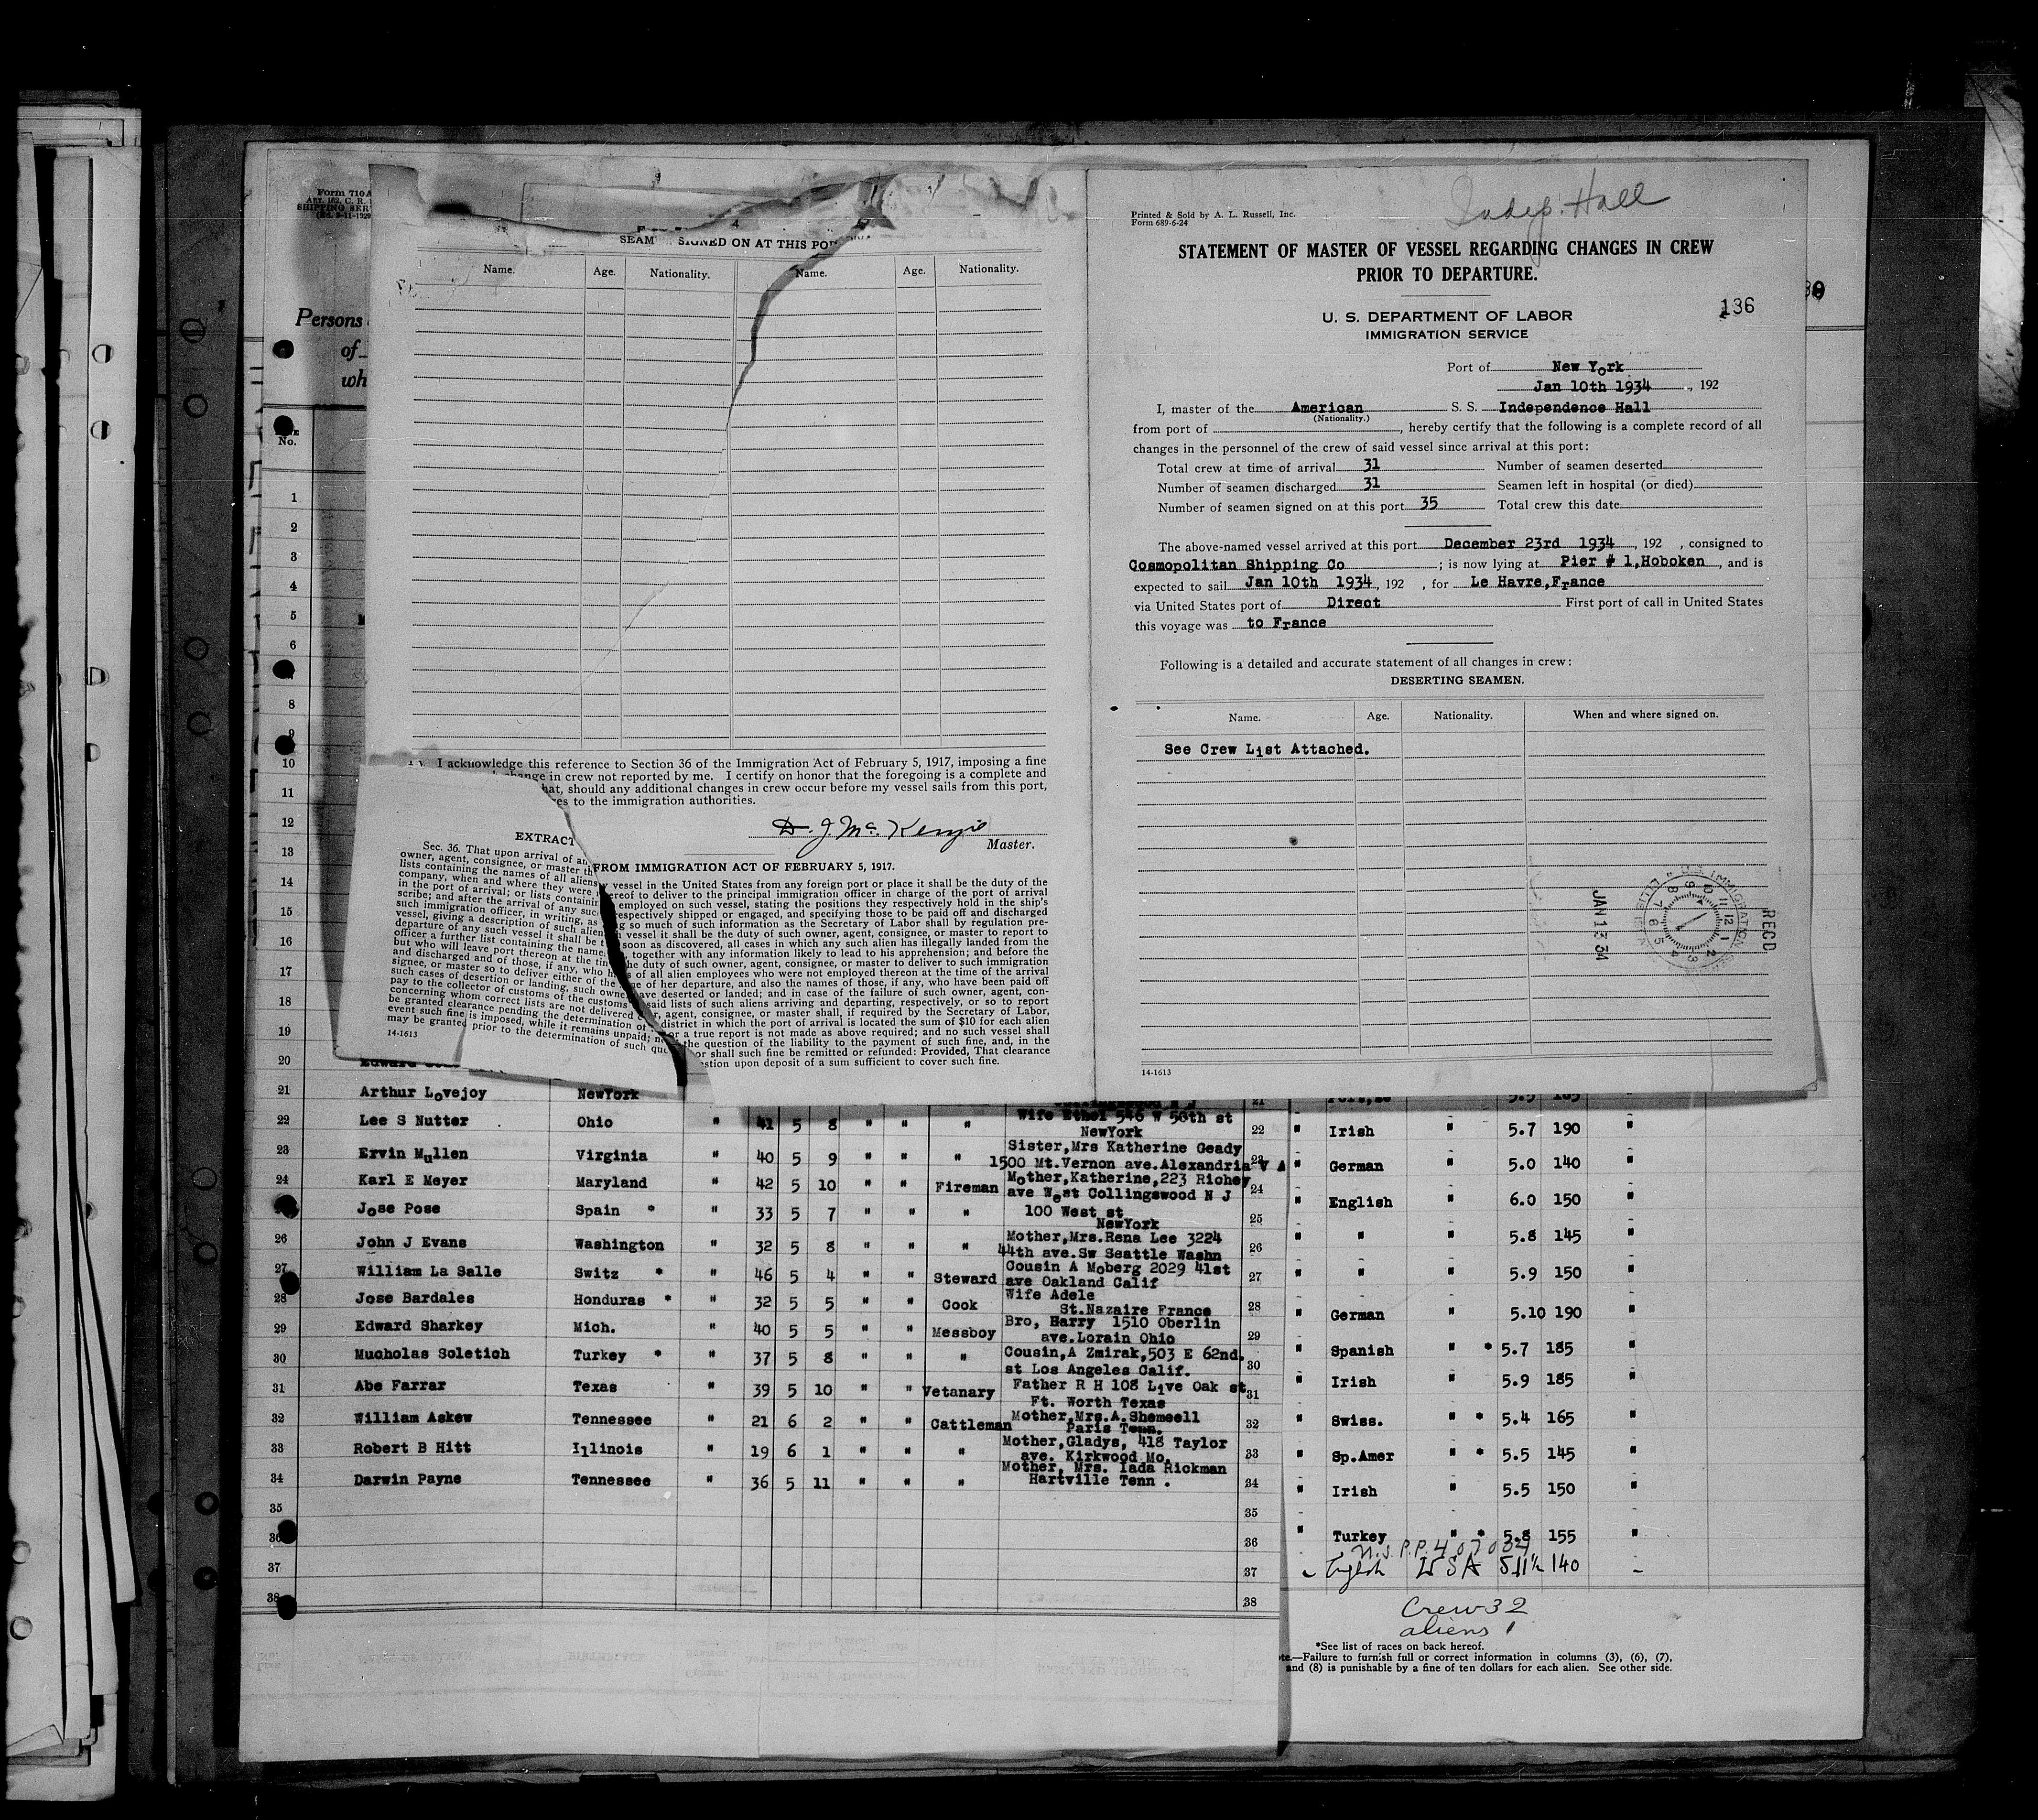 Form 710A
ART. 162, C. R.
SHIPPING SER
(Ed. 3-11-1929
Persons
of
wh
No.
4
SEAM SIGNED ON AT THIS POR
Name. Age. Nationality. Name. Age. Nationality.
I acknowledge this reference to Section 36 of the Immigration Act of February 5, 1917, imposing a fine
change in crew not reported by me. I certify on honor that the foregoing is a complete and
hat, should any additional changes in crew occur before my vessel sails from this port,
es to the immigration authorities.
D. J Mc. Kenzie
Master.
EXTRACT FROM IMMIGRATION ACT OF FEBRUARY 5, 1917.
Sec. 36. That upon arrival of an y vessel in the United States from any foreign port or place it shall be the duty of the
owner, agent, consignee, or master th ereof to deliver to the principal immigration officer in charge of the port of arrival
lists containing the names of all aliens employed on such vessel, stating the positions they respectively hold in the ship's
company, when and where they were respectively shipped or engaged, and specifying those to be paid off and discharged
in the port of arrival; or lists containin g so much of such information as the Secretary of Labor shall by regulation pre-
scribe; and after the arrival of any suc h vessel it shall be the duty of such owner, agent, consignee, or master to report to
such immigration officer, in writing, as soon as discovered, all cases in which any such alien has illegally landed from the
vessel, giving a description of such alien, together with any information likely to lead to his apprehension; and before the
departure of any such vessel it shall be t he duty of such owner, agent, consignee, or master to deliver to such immigration
officer a further list containing the name s of all alien employees who were not employed thereon at the time of the arrival
but who will leave port thereon at the tim e of her departure, and also the names of those, if any, who have been paid off
and discharged and of those, if any, who h ave deserted or landed; and in case of the failure of such owner, agent, con-
signee, or master so to deliver either of the said lists of such aliens arriving and departing, respectively, or so to report
such cases of desertion or landing, such owner, agent, consignee, or master shall, if required by the Secretary of Labor,
pay to the collector of customs of the customs district in which the port of arrival is located the sum of $10 for each alien
concerning whom correct lists are not delivered or a true report is not made as above required; and no such vessel shall
be granted clearance pending the determination of the question of the liability to the payment of such fine, and, in the
event such fine is imposed, while it remains unpaid; nor shall such fine be remitted or refunded: Provided, That clearance
may be granted prior to the determination of such question upon deposit of a sum sufficient to cover such fine.
14-1613
Indep. Hall
Printed & Sold by A. L. Russell, Inc.
Form 689-6-24
STATEMENT OF MASTER OF VESSEL REGARDING CHANGES IN CREW
PRIOR TO DEPARTURE.
136
U. S. DEPARTMENT OF LABOR
IMMIGRATION SERVICE
Port of New York
Jan 10th 1934, 192
I, master of the American S. S. Independence Hall
(Nationality.)
from port of , hereby certify that the following is a complete record of all
changes in the personnel of the crew of said vessel since arrival at this port:
Total crew at time of arrival 31 Number of seamen deserted
Number of seamen discharged 31 Seamen left in hospital (or died)
Number of seamen signed on at this port 35 Total crew this date
The above-named vessel arrived at this port December 23rd 1934, 192 , consigned to
Cosmopolitan Shipping Co ; is now lying at Pier # 1,Hoboken, and is
expected to sail Jan 10th 1934, 192 , for Le Havre,France
via United States port of Direct First port of call in United States
this voyage was to France
Following is a detailed and accurate statement of all changes in crew:
DESERTING SEAMEN.
Name. Age. Nationality. When and where signed on.
See Crew List Attached.
REC'D
U.S. IMMIGRATION
JAN 13 34
14-1613
1
2
3
4
5
6
8
9
10
11
12
13
14
15
16
17
18
19
20 Edward
21 Arthur Lovejoy NewYork 21 5.5 185
22 Lee S Nutter Ohio " 41 5 8 " " " Wife Ethel 546 W 50th st NewYork 22 " Irish " 5.7 190 "
23 Ervin Mullen Virginia " 40 5 9 " " " Sister,Mrs Katherine Geady 1500 Mt.Vernon ave.Alexandria V A 23 " German " 5.0 140 "
24 Karl E Meyer Maryland " 42 5 10 " " Fireman Mother,Katherine,223 Richey ave West Collingswood N J 24 " English " 6.0 150 "
Jose Pose Spain * " 33 5 7 " " " 100 West st NewYork 25
26 John J Evans Washington " 32 5 8 " " " Mother,Mrs.Rena Lee 3224 44th ave.Sw Seattle Washn 26 " " " 5.8 145 "
27 William La Salle Switz * " 46 5 4 " " Steward Cousin A Moberg 2029 41st ave Oakland Calif 27 " " " 5.9 150 "
28 Jose Bardales Honduras * " 32 5 5 " " Cook Wife Adele St.Nazaire France 28 " German 5.10 190 "
29 Edward Sharkey Mich. " 40 5 5 " " Messboy Bro, Harry 1510 Oberlin ave.Lorain Ohio 29 " Spanish " * 5.7 185 "
30 Mucholas Soletich Turkey * " 37 5 8 " " " Cousin,A Zmirak,503 E 62nd. st Los Angeles Calif. 30
31 Abe Farrar Texas " 39 5 10 " " Vetanary Father R H 108 Live Oak st Ft. Worth Texas 31 " Irish " 5.9 185 "
32 William Askew Tennessee " 21 6 2 " " Cattleman Mother,Mrs.A.Shemeell Paris Tenn. 32 " Swiss. " * 5.4 165 "
33 Robert B Hitt Illinois " 19 6 1 " " " Mother,Gladys, 418 Taylor ave. Kirkwood Mo. 33 " Sp.Amer " * 5.5 145 "
34 Darwin Payne Tennessee " 36 5 11 " " " Mother, Mrs. Iada Rickman Hartville Tenn . 34 " Irish " 5.5 150 "
35 35
36 36 " Turkey " * 5.8 155 "
N.S. P.P. 407039
37 37 English USA 5 11½ 140
38 38
Crew 32
aliens 1
*See list of races on back hereof.
te.—Failure to furnish full or correct information in columns (3), (6), (7),
and (8) is punishable by a fine of ten dollars for each alien. See other side.